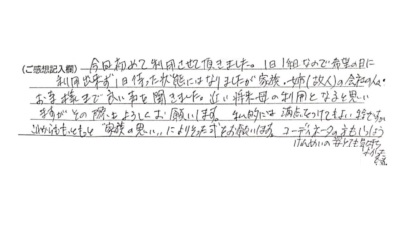 (ご感想記入欄) 今回初めて利用させて頂きました。1日1組なので希望の日に
利用出来ず1日待った状態にはなりましたが家族・姉(故人)の会社の人・
お客様まで良い事を聞きました。近い将来母の利用となると思い
ますがその際はよろしくお願いします。私的には満点をつけてもよい
これからももっともっと“家族の思い”によりそったお願いします。コーディネーターの方もいっしょう
けんめいの姿とても